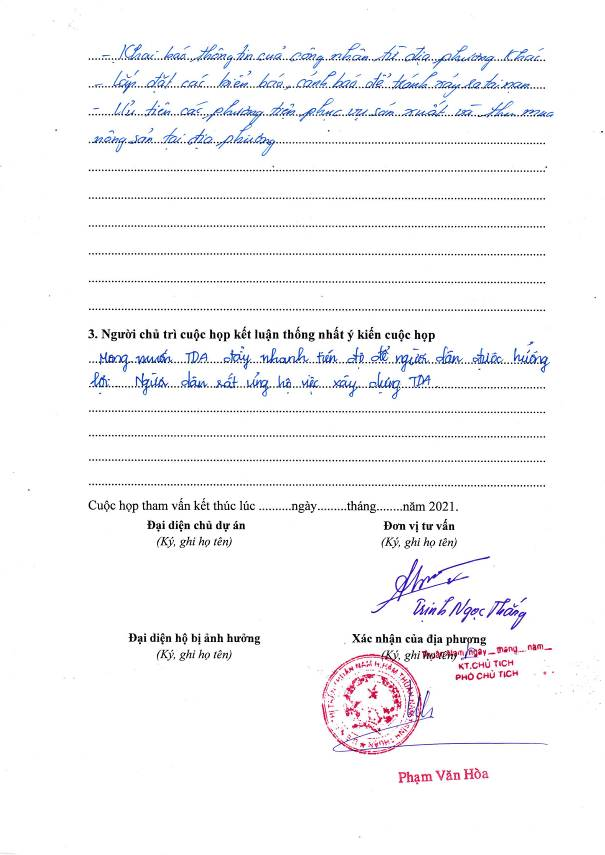 - Khai báo thông tin của công nhân từ địa phương khác
- Lắp đặt các biển báo, cảnh báo để tránh xảy ra tai nạn
- Ưu tiên các phương tiện phục vụ sản xuất và thu mua
nông sản tại địa phương
3. Người chủ trì cuộc họp kết luận thống nhất ý kiến cuộc họp
Mong muốn TDA đẩy nhanh tiến độ để người dân được hưởng
lợi. Người dân rất ủng hộ việc xây dựng TDA.
Cuộc họp tham vấn kết thúc lúc ..........ngày.........tháng........năm 2021.
Đại diện chủ dự án Đơn vị tư vấn
(Ký, ghi họ tên) (Ký, ghi họ tên)
Trịnh Ngọc Thắng
Đại diện hộ bị ảnh hưởng Xác nhận của địa phương
(Ký, ghi họ tên) (Ký, ghi họ tên)
ngày tháng năm
KT.CHỦ TỊCH
PHÓ CHỦ TỊCH
Phạm Văn Hòa